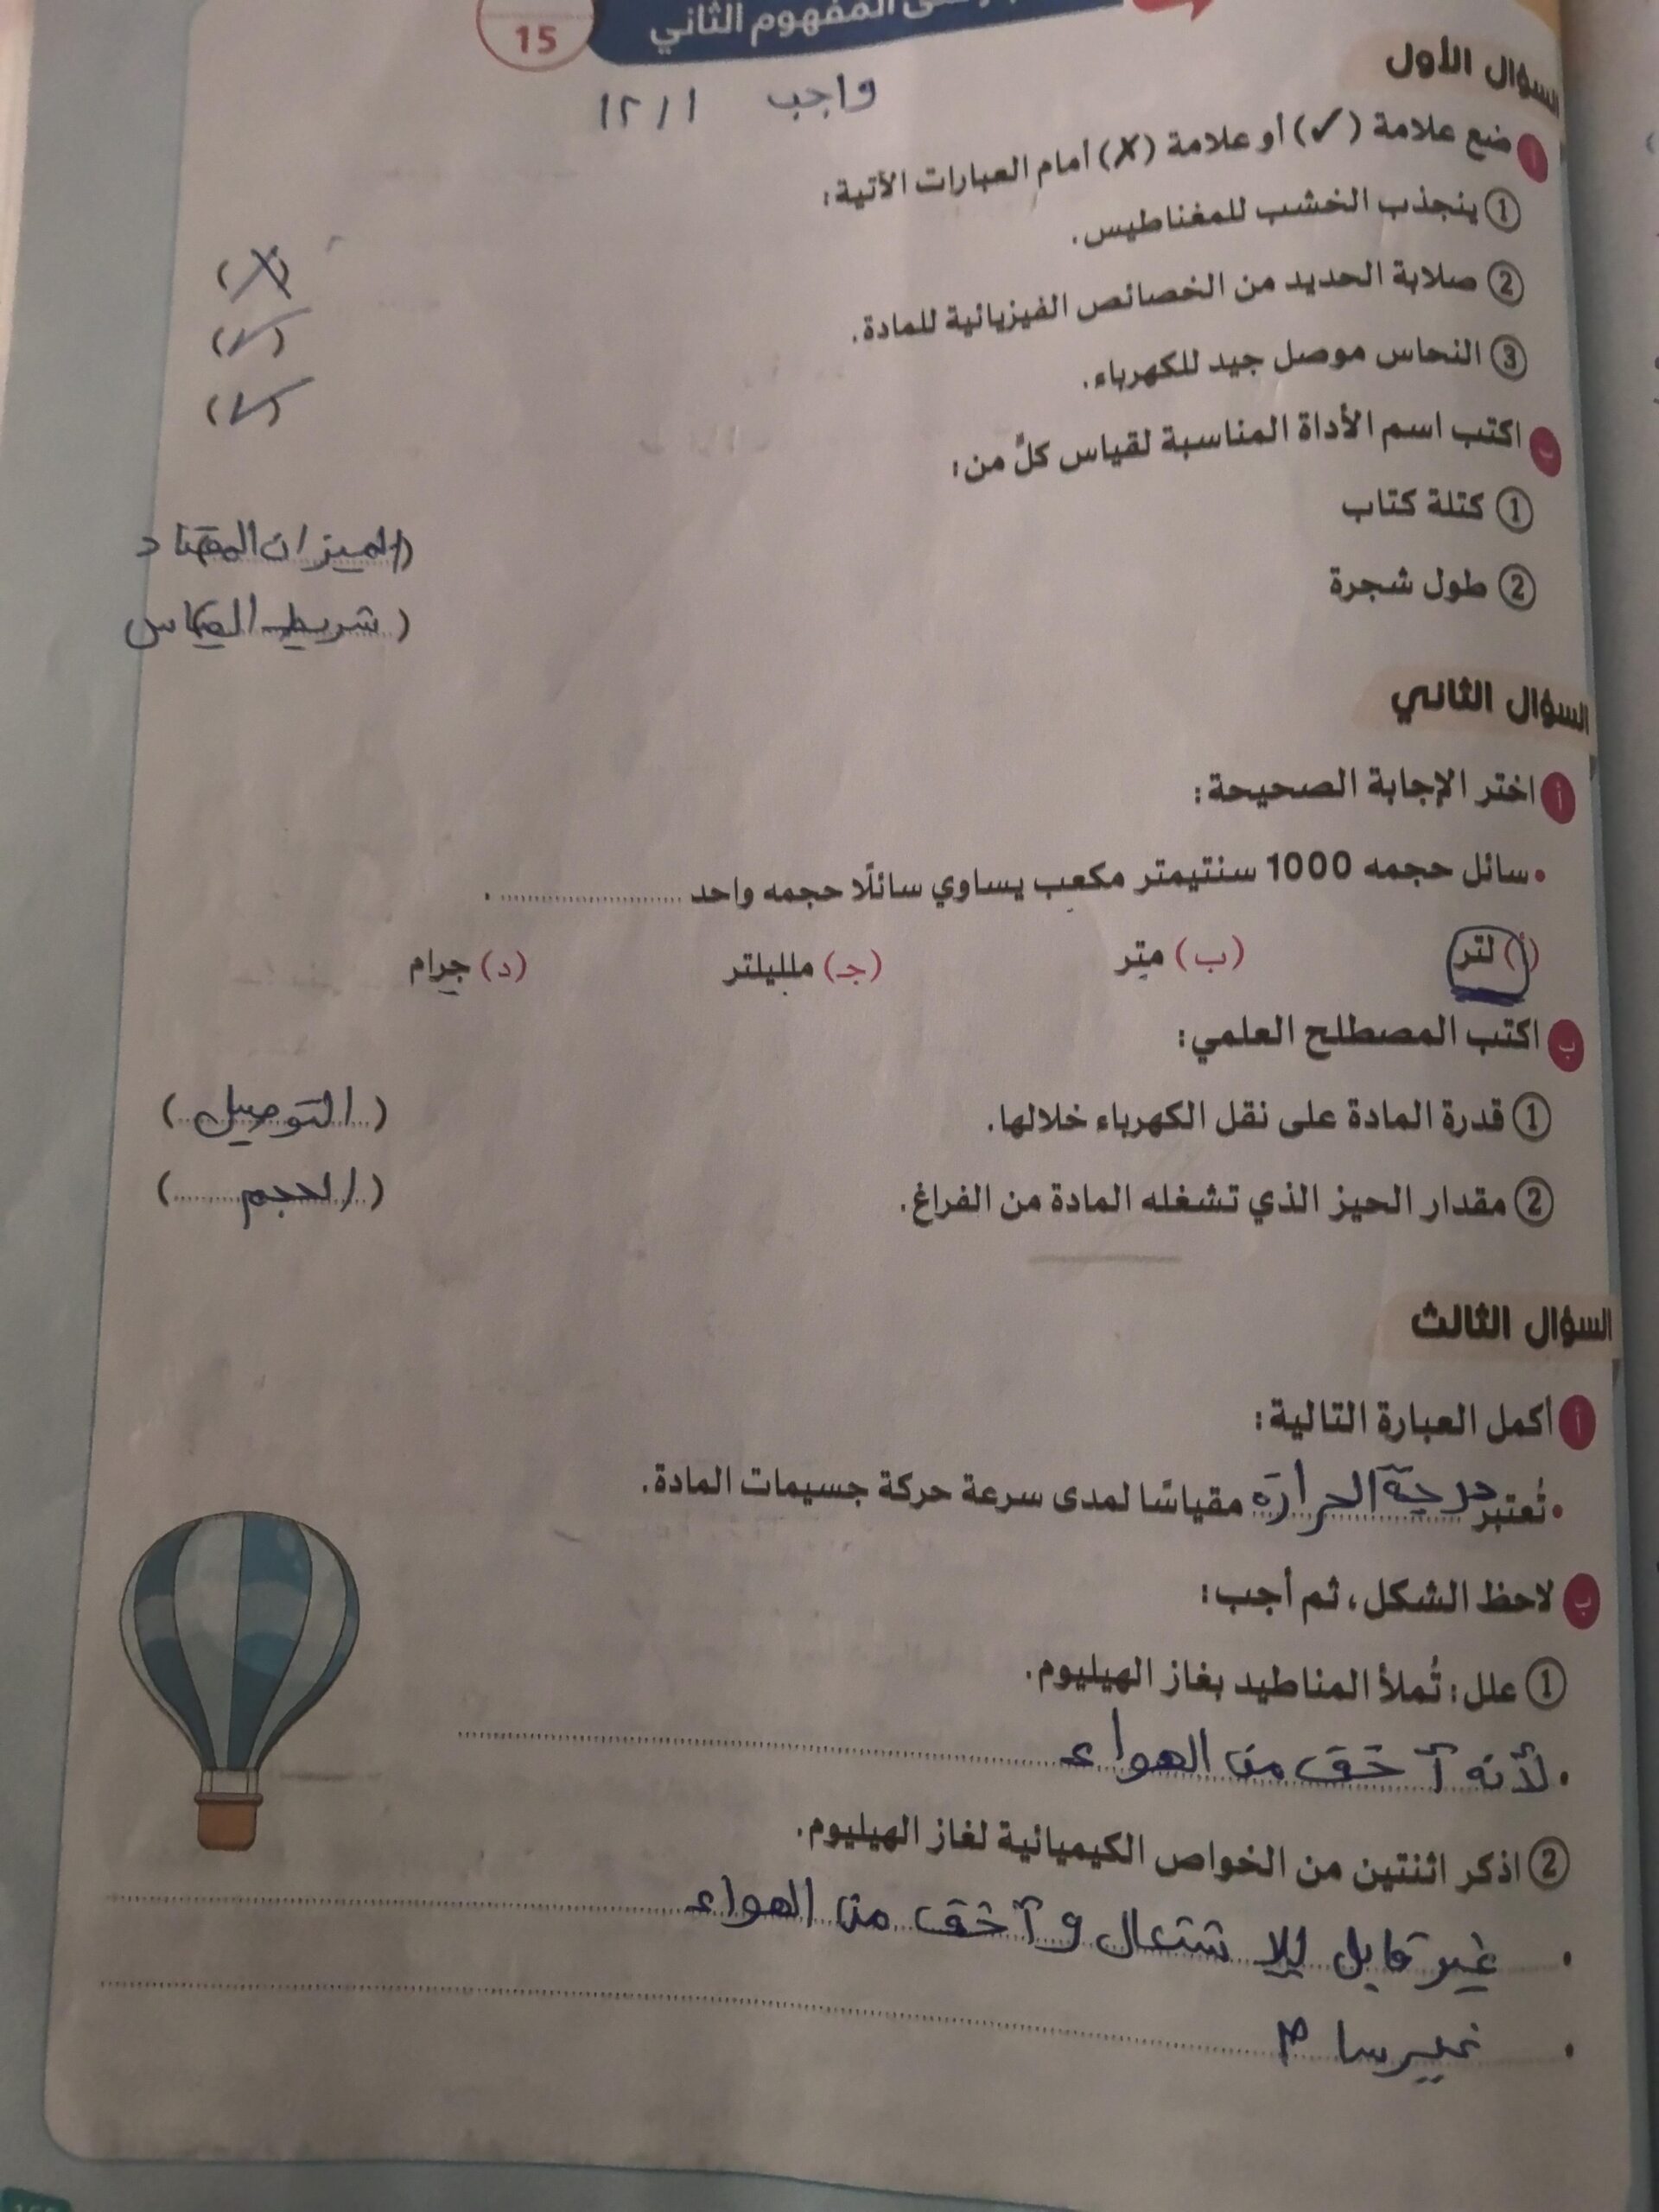 المفهوم الثاني
15
واجب ١ / ١٢
السؤال الأول
أ ضع علامة (✓) أو علامة (✗) أمام العبارات الآتية:
① ينجذب الخشب للمغناطيس. (✗)
② صلابة الحديد من الخصائص الفيزيائية للمادة. (✓)
③ النحاس موصل جيد للكهرباء. (✓)
ب اكتب اسم الأداة المناسبة لقياس كلٍّ من:
① كتلة كتاب (الميزان المعتاد)
② طول شجرة (شريط القياس)
السؤال الثاني
أ اختر الإجابة الصحيحة:
• سائل حجمه 1000 سنتيمتر مكعب يساوي سائلًا حجمه واحد .................... .
(أ) لتر (ب) متر (جـ) ملليلتر (د) جرام
ب اكتب المصطلح العلمي:
① قدرة المادة على نقل الكهرباء خلالها. (التوصيل)
② مقدار الحيز الذي تشغله المادة من الفراغ. (الحجم)
السؤال الثالث
أ أكمل العبارة التالية:
• تُعتبر درجة الحرارة مقياسًا لمدى سرعة حركة جسيمات المادة.
ب لاحظ الشكل، ثم أجب:
① علل: تُملأ المناطيد بغاز الهيليوم.
• لأنه أخف من الهواء
② اذكر اثنتين من الخواص الكيميائية لغاز الهيليوم.
• غير قابل للاشتعال وأخف من الهواء
• غير سام